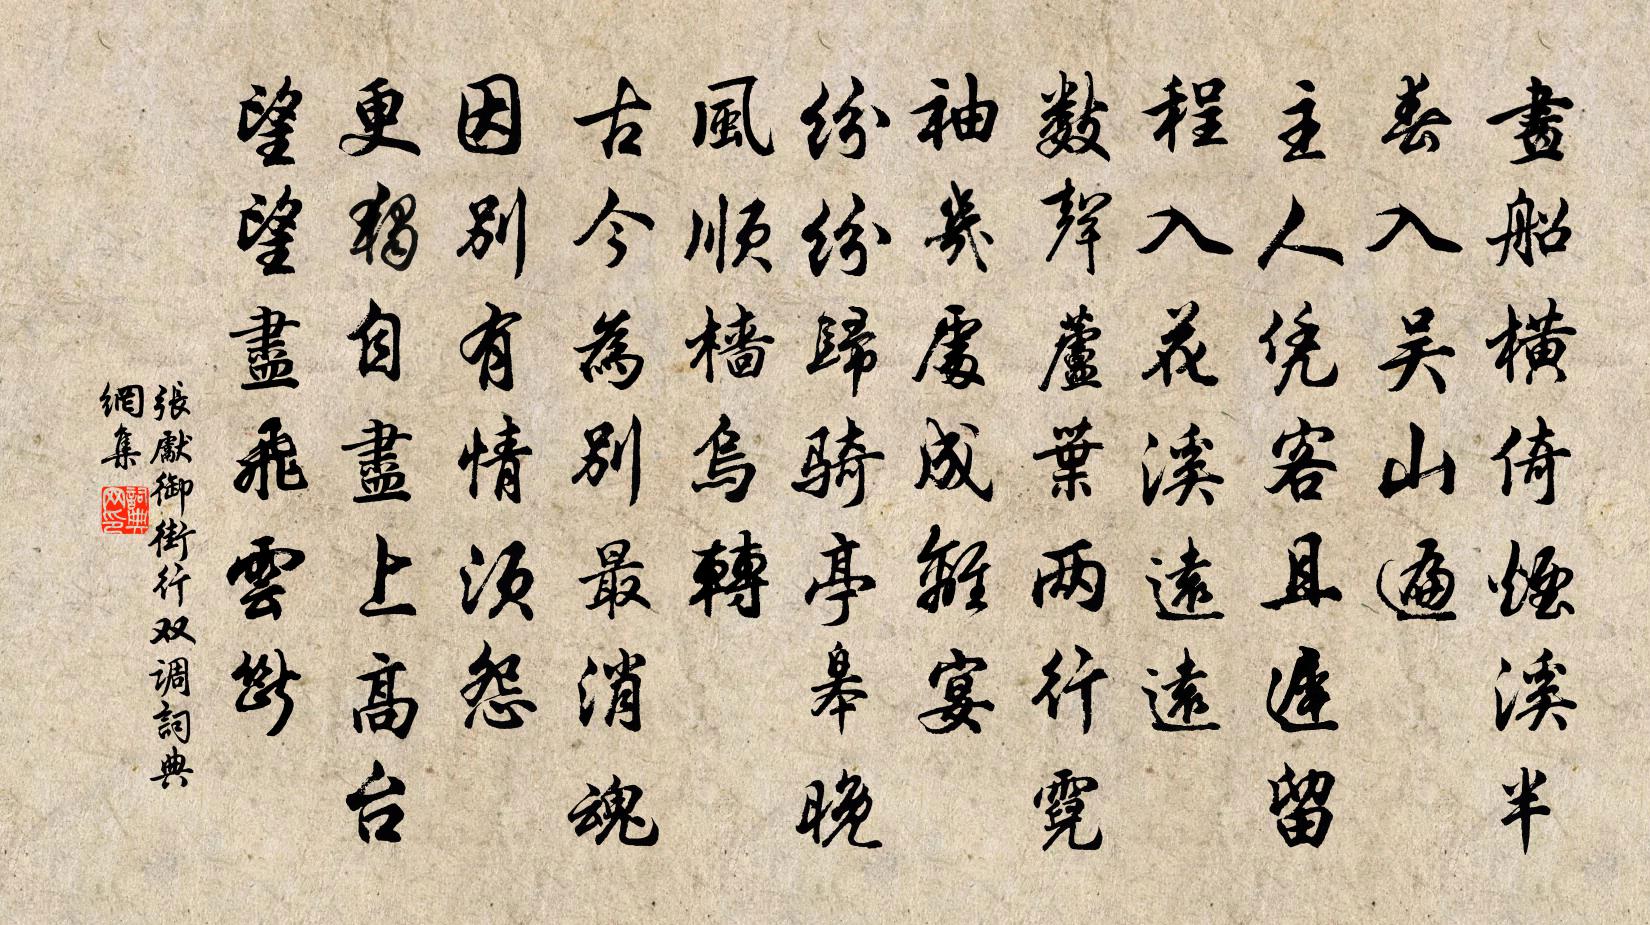 畫船橫倚煙溪半
春入吴山遍
主人凭客且遲留
程入花溪遠遠
數聲蘆葉两行霓
袖幾處成離宴
紛紛歸騎亭皋晚
風順檣烏轉
古今為別最消魂
因別有情須怨
更獨自盡上高台
望望盡飛雲斷
張獻御街行双调詞典
網集
詞典
网印